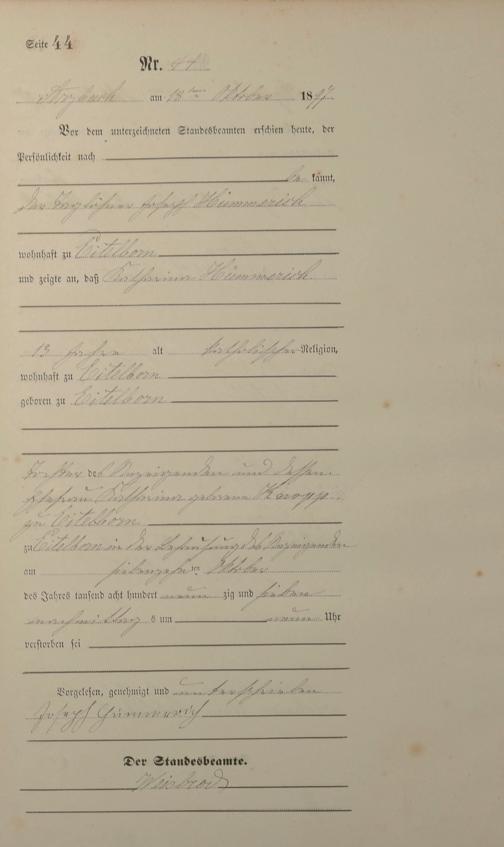 Seite 44
Nr. 44
Arzbach am 18ten Oktober 1897
Vor dem unterzeichneten Standesbeamten erschien heute, der
Persönlichkeit nach
be kannt,
der Taglöhner Joseph Hümmerich
wohnhaft zu Eitelborn
und zeigte an, daß Katharina Hümmerich
13 Jahre alt katholischer Religion,
wohnhaft zu Eitelborn
geboren zu Eitelborn
Tochter des Anzeigenden und dessen
Ehefrau Katharina geborene Knopp
zu Eitelborn
zu Eitelborn in der Behausung des Anzeigenden
am siebenzehnten Oktober
des Jahres tausend acht hundert neun zig und sieben
nachmittags um neun Uhr
verstorben sei
Vorgelesen, genehmigt und unterschrieben
Joseph Hümmerich
Der Standesbeamte.
Weisbrod